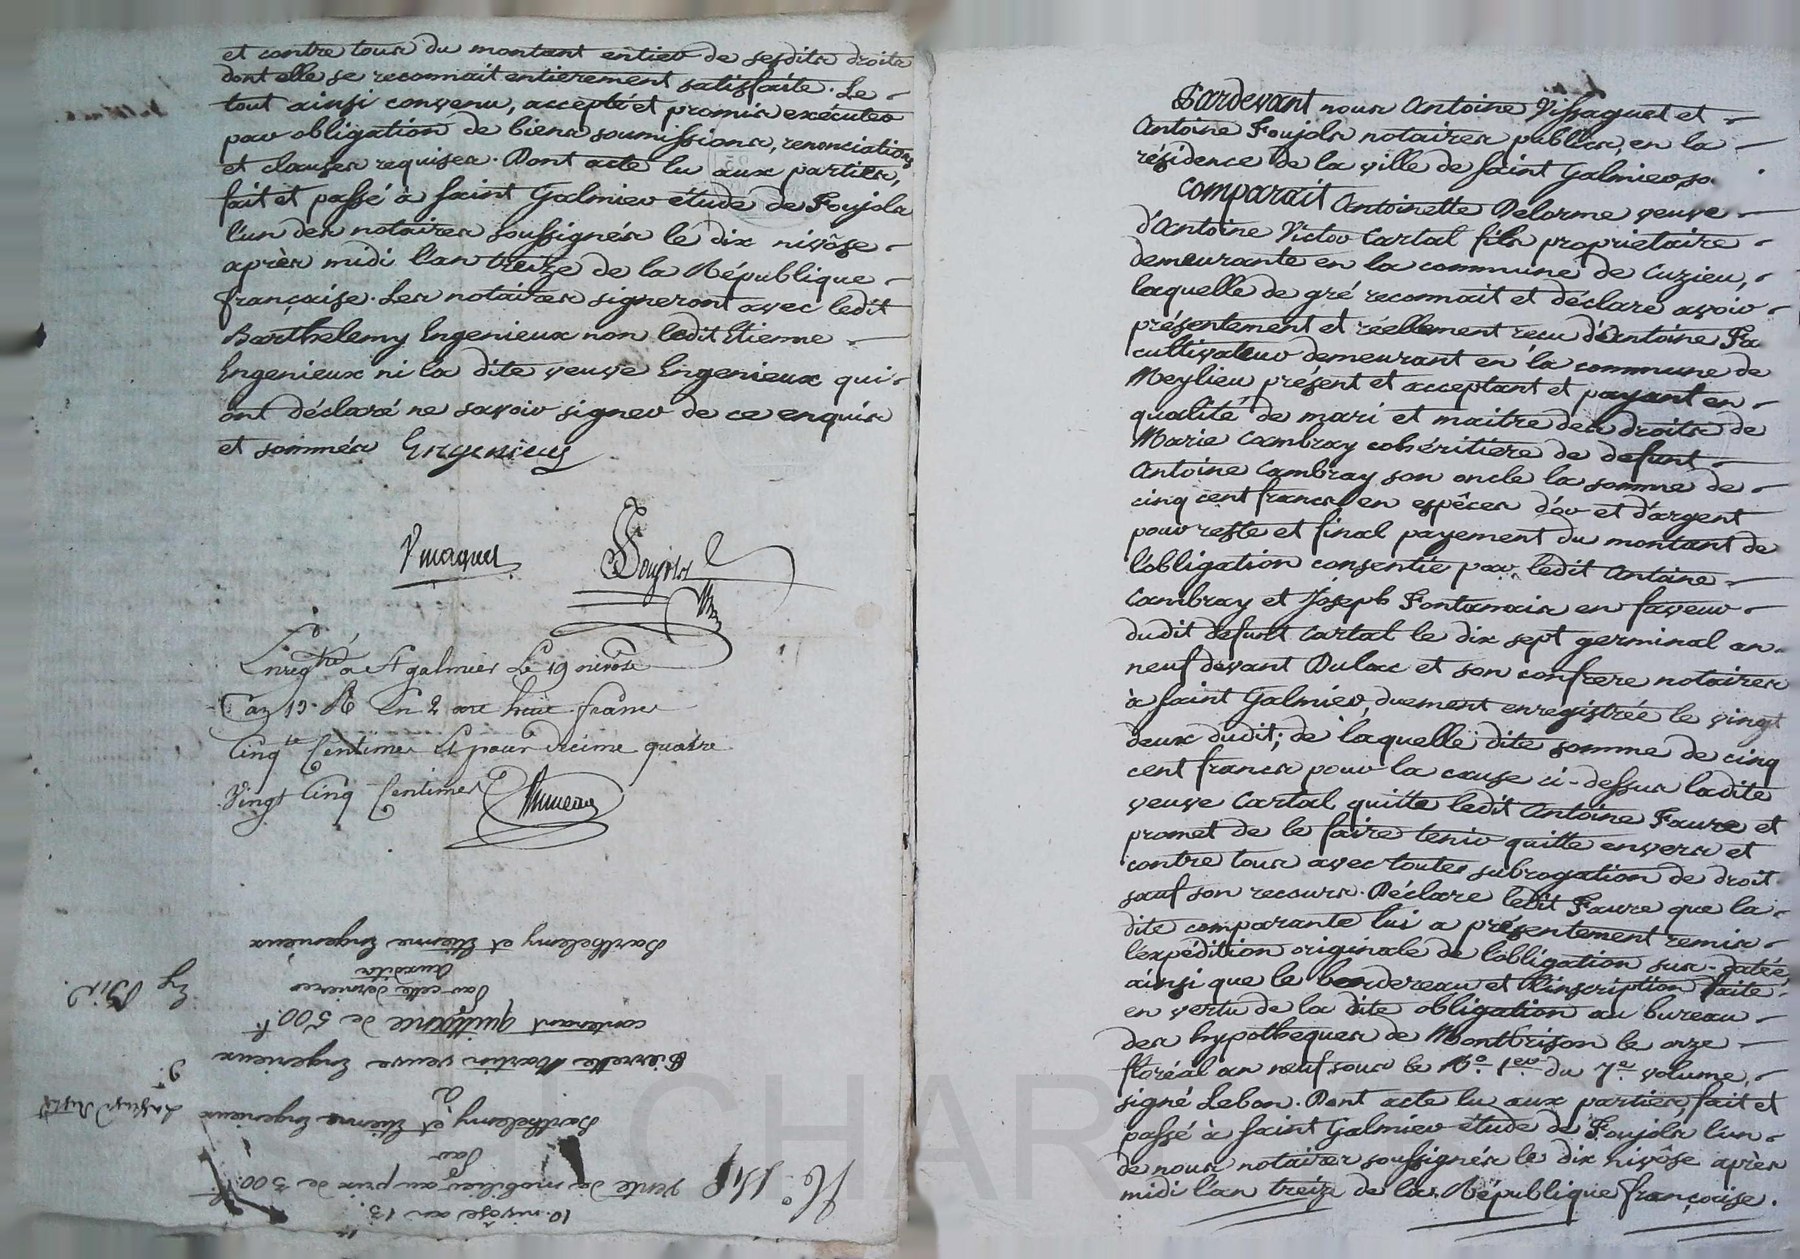 et contre tous du montant entier de sesdits droits
dont elle se reconnait entierement satisfaite. Le
tout ainsi convenu, accepté et promis exécuter
par obligation de biens soumissions, renonciations
et clauses requises. Dont acte lu aux parties,
fait et passé à saint Galmier étude de Foujols
l'un des notaires soussignés le dix nivôse
après midi l'an treize de la République
française. Les notaires signeront avec ledit
Barthelemy Engenieux non ledit Etienne
Engenieux ni la dite veuve Engenieux qui
ont déclaré ne savoir signer de ce enquis
et sommés Engenieux
Foujols
Enregtré à St galmier Le 19 nivose
an 13. en 2 art huit francs
Cinqte Centimes Et pour décime quatre
Vingt Cinq Centimes
10. nivôse an 13.
No.
vente de mobilier au prix de 500.f
Par
Barthelemy et Etienne Engenieux
à
Pierrette Martin veuve Engenieux
contenant quittance de 500.f
Par cette derniere
Auxdits
Barthelemy et Etienne Engenieux
Pardevant nous Antoine Vissaguet et
Antoine Foujols notaires publics, en la
résidence de la ville de saint Galmier, so
Comparait Antoinette Delorme veuve
d'Antoine Victor Cartal fils proprietaire
demeurante en la commune de Cuzieu,
laquelle de gré reconnait et déclare avoir
présentement et réellement recu d'Antoine Fa
cultivateur demeurant en la commune de
Meylieu présent et acceptant et payant en
qualité de mari et maitre des droits de
Marie Cambray cohéritière de defunt
Antoine Cambray son oncle la somme de
cinq cent francs en espêces d'or et d'argent
pour reste et final payement du montant de
l'obligation consentie par ledit Antoine
Cambray et Joseph Fontanais en faveur
dudit defunt Cartal le dix sept germinal an
neuf devant Dulac et son confrere notaires
à saint Galmier, duement enregistrée le vingt
deux dudit; de laquelle dite somme de cinq
cent francs pour la cause ci-dessus ladite
veuve Cartal quitte ledit Antoine Faure et
promet de le faire tenir quitte envers et
contre tous avec toutes subrogation de droit
sauf son recours. Déclare ledit Faure que la
dite comparante lui a présentement remis
l'expédition originale de l'obligation sus-datée
ainsi que le bordereau et l'inscription faite
en vertu de la dite obligation au bureau
des hypotheques de Montbrison le onze
floréal an neuf sous le No. 1er du 7e volume,
signé Lebon. Dont acte lu aux parties, fait et
passé à saint Galmier étude de Foujols l'un
de nous notaires soussignés le dix nivôse après
midi l'an treize de la République française.